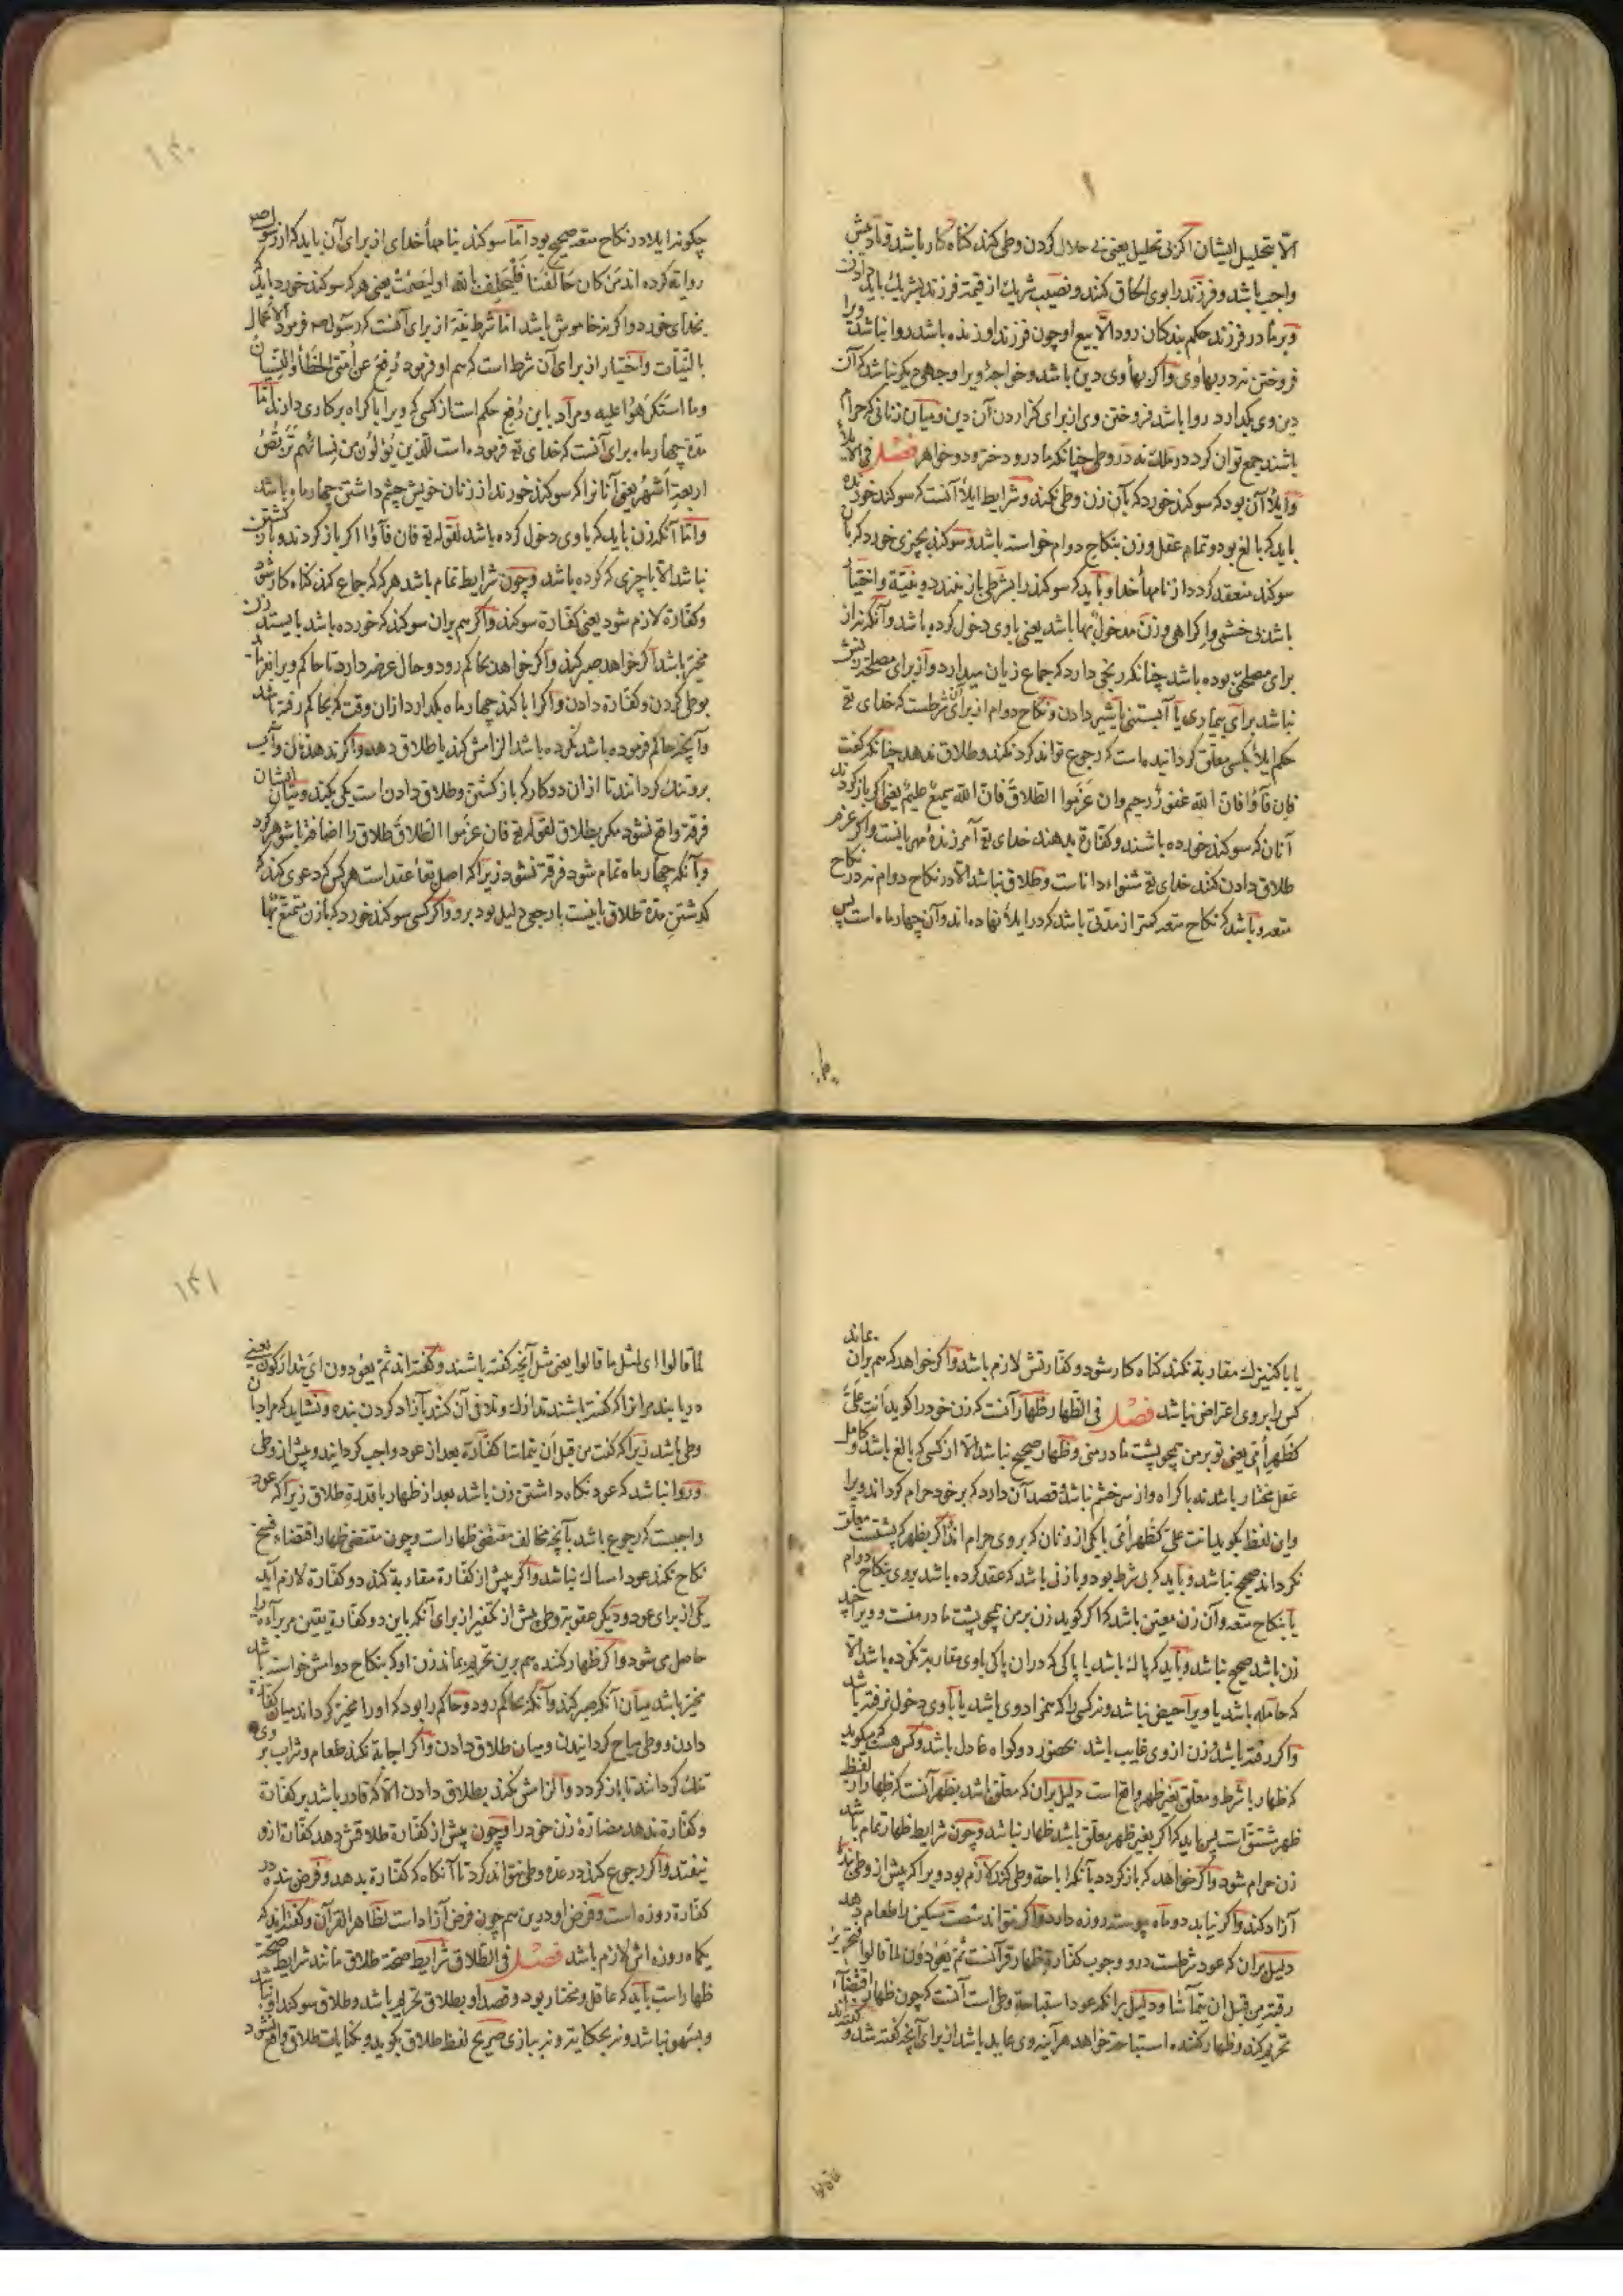 الّا بتحلیل ایشان اکر بی تحلیل یعنی بی حلال کردن وطی کند کناه کار باشد و تادیبش
واجب باشد و فرزند را بوی الحاق کنند و نصیب شریك از قیمة فرزند بشریك باید دادن
و بر مادر فرزند حکم بندکان رود الّا بیع او چون فرزند او زنده باشد روا نباشد ویرا
فروختن نه در بهأ وی و اکر بهأ وی دین باشد و خواجۀ ویرا وجهی دیکر نباشد که آن
دین وی بکذارد روا باشد فروختن وی از برای کزاردن آن دین و میان زنانی که حرام
باشند جمع توان کرد در ملك نه در وطی چنانکه مادر و دختر و دو خواهر فصل فی الایلأ
و ایلأ آن بود که سوکند خورد که بآن زن وطی نکند و شرایط ایلأ آنست که سوکند خورنده
باید که بالغ بود و تمام عقل و زن بنکاح دوام خواسته باشد و سوکند بچیزی خورد که بآن
سوکند منعقد کردد از نامهأ خدا و باید که سوکند را بشرطی باز نبندد و بنیّة و اختیار
باشد بی خشمی و اکراهی و زن مدخول بها باشد یعنی باوی دخول کرده باشد و آنکه نه از
برای مصلحتی بوده باشد چنانکه رنجی دارد که جماع زیان میدارد و از برای مصلحة زنش
نباشد برای بیماری یا آبستنی یا شیر دادن و نکاح دوام از برای آن شرطست که خدای تع
حکم ایلأ بکسی معلّق کردانیده است که رجوع تواند کرد نکند و طلاق ندهد چنانکه کفت
فان فآؤا فانّ الله غفورٌ رحیم وان عزموا الطلاق فانّ الله سمیعٌ علیم یعنی اکر باز کردند
آنان که سوکند خورده باشند و کفّارة بدهند خدای تع آمرزندۀ مهربانست و اکر عزم
طلاق دادن کنند خدای تع شنواء داناست و طلاق نباشد الّا در نکاح دوام نه در نکاح
متعه و باشد که نکاح متعه کمتر از مدّتی باشد که در ایلأ نهاده اند و آن چهار ماه است پس
چکونه ایلا در نکاح متعه صحیح بود امّا سوکند بنامهأ خدای از برای آن باید که از رسول صم
روایة کرده اند مَن کان حَالفًا فَلْیَحلِف بالله او لیَصمُتْ یعنی هر که سوکند خورد باید که
بخدای خورد و اکر نه خاموش باشد امّا شرط نیّة از برای آنست که رسول صم فرمود الاعمال
بالنیّات و اختیار از برای آن شرط است که هم او فرمود رُفِعَ عن اُمّتی الخَطأ والنِّسیانُ
وما استُکرِهُوا علیه و مراد باین رفع حکم است از کسی که ویرا باکراه بر کاری دارند امّا
مدّة چهار ماه برای آنست که خدای تع فرموده است للّذین یُؤلُون من نِسائهم تَرَبُّصُ
اربعة اَشهُر یعنی آنانرا که سوکند خورند از زنان خویش چشم داشتن چهار ماه باشد
و امّا آنکه زن باید که باوی دخول کرده باشد لقوله تع فان فآؤا اکر باز کردند و باز کشتن
نباشد الّا باچیزی که کرده باشد و چون شرایط تمام باشد هر که که جماع کند کناه کار شود
و کفّارة لازم شود یعنی کفّارة سوکند و اکر هم بران سوکند که خورده باشد بایستد زن
مخیّر باشد اکر خواهد صبر کند و اکر خواهد بحاکم رود و حال عرضه دارد تا حاکم ویرا بفرماید
بوطی کردن و کفّارة دادن و اکر ابا کند چهار ماه بکذارد از آن وقت که بحاکم رفته باشد
و آنچه حاکم فرموده باشد نکرده باشد الزامش کند یا طلاق دهد و اکر ندهد نان و آب
برو تنك کردانند تا از ان دو کار که باز کشتن و طلاق دادن است یکی بکند و میان ایشان
فرقة واقع نشود مکر بطلاق لقوله تع فان عزموا الطلاق طلاق را اضافة بشوهر کرد
و بآنکه چهار ماه تمام شود فرقة نشود زیرا که اصل بقأ عقد است هر کس که دعوی کند که
کذشتن مدّة طلاق باینست بارجعی دلیل بود برو و اکر کسی سوکند خورد که بازن متمتّع بها
یا با کنیزك مقاربة نکند کناه کار شود و کفّارتش لازم باشد و اکر خواهد که هم بران بماند
کس را بروی اعتراضی نباشد فصل فی الظهار ظهار آنست که زن خود را کوید اَنتِ عَلَیَّ
کظَهرِ اُمّی یعنی تو بر من همچو پشت مادر منی و ظهار صحیح نباشد الّا از کسی که بالغ باشد و کامل
عقل مختار باشد نه باکراه و از سر خشم نباشد و قصد آن دارد که بر خود حرام کرداند ویرا
و این لفظ بکوید انت علیّ کظهر اُمّی یا یکی از زنان که بروی حرام اند و اکر بظهر که پشتست معلّق
نکرداند صحیح نباشد و باید که بی شرط بود و با زنی باشد که عقد کرده باشد بروی بنکاح دوام
یا بنکاح متعه و آن زن معیّن باشد که اکر کوید زن بر من همچو پشت مادر منست و ویرا چند
زن باشد صحیح نباشد و باید که پاك باشد یا پاکی که دران پاکی باوی مقاربة نکرده باشد الّا
که حامله باشد یا ویرا حیض نباشد و نه کسی را که همزاد وی باشد یا باوی دخول نرفته باشد
و اکر رفته باشد زن از وی غایب باشد بحضور دو کواه عادل باشد و کس هست که میکوید
که ظهار با شرط و معلّق بغیر ظهر واقع است دلیل بران که معلّق باشد بظهر آنست که ظهار از لفظ
ظهر مشتق است پس باید که اکر بغیر ظهر معلّق باشد ظهار نباشد و چون شرایط ظهار تمام باشد
زن حرام شود و اکر خواهد که باز کردد بآنکه اباحة وطی کند لازم بود ویرا که پیش از وطی بندۀ
آزاد کند و اکر نیابد دو ماه پیوسته روزه دارد و اکر نتواند شصت مسکین را طعام دهد
دلیل بران که عود شرطست در وجوب کفّارة ظهار قرآنست ثُمَّ یَعُودُون لما قالوا فتحریر
رقبة من قبل ان یتمآسّا و دلیل برانکه عود استباحة وطی است آنست که چون ظهار اقتضاء
تحریم کند و ظهار کننده استباحة خواهد هر آینه وی عاید باشد از برای آنچه کفته شد و کفته اند
لما قالوا ای لمثل ما قالوا یعنی مثل آنچه کفته باشند و کفته اند ثمّ یعودون ای یتدارکون یعنی
دریابند مرانرا که کفته باشند تدارك و تلافی آن کنند بآزاد کردن بنده و نشاید که مراد بآن
وطی باشد زیرا که کفت من قبل اَن یتماسّا کفّارة بعد از عود واجب کردانید و پیش از وطی
و روا نباشد که عود نکاه داشتن زن باشد بعد از ظهار با قدرة طلاق زیرا که عود
واجبست که رجوع باشد بآنچه مخالف مقتضی ظهار است و چون مقتضی ظهار اقتضاء فسخ
نکاح نکند عود امساك نباشد و اکر پیش از کفّارة مقاربة کند دو کفّارة لازم آید
یکی از برای عود و دیکر عقوبة وطی پیش از تکفیر از برای آنکه باین دو کفّارة یقین مر براءة را
حاصل می شود و اکر ظهار کننده هم برین تحریم بماند زن او که بنکاح دوامش خواسته باشد
مخیّر باشد میان آنکه صبر کند و آنکه بحاکم رود و حاکم را بود که او را مخیّر کرداند میان کفّارة
دادن و وطی مباح کردانیدن و میان طلاق دادن و اکر اجابة نکند طعام و شراب بر وی
تنك کردانند تا باز کردد و الزامش نکند بطلاق دادن الّا که قادر باشد بر کفّارة
و کفّارة ندهد مضارّة زن خود را و چون پیش از کفّارة طلاقش دهد کفّارة ازو
نیفتد و اکر رجوع کند در عدّه وطی نتواند کرد تا آنکاه که کفّارة بدهد و فرض بنده در
کفّارة روزه است و فرض او درین هم چون فرض آزاد است لظاهر القرآن و کفته اند که
یکماه روزه اش لازم باشد فصل فی الطلاق شرایط صحّة طلاق مانند شرایط صحّة
ظهار است باید که عاقل و مختار بود و قصد او بطلاق تحریم باشد و طلاق سوکند او نباشد
و بسهو نباشد و نه بحکایة و نه ببازی صریح لفظ طلاق بکوید و بکنایات طلاق واقع نشود